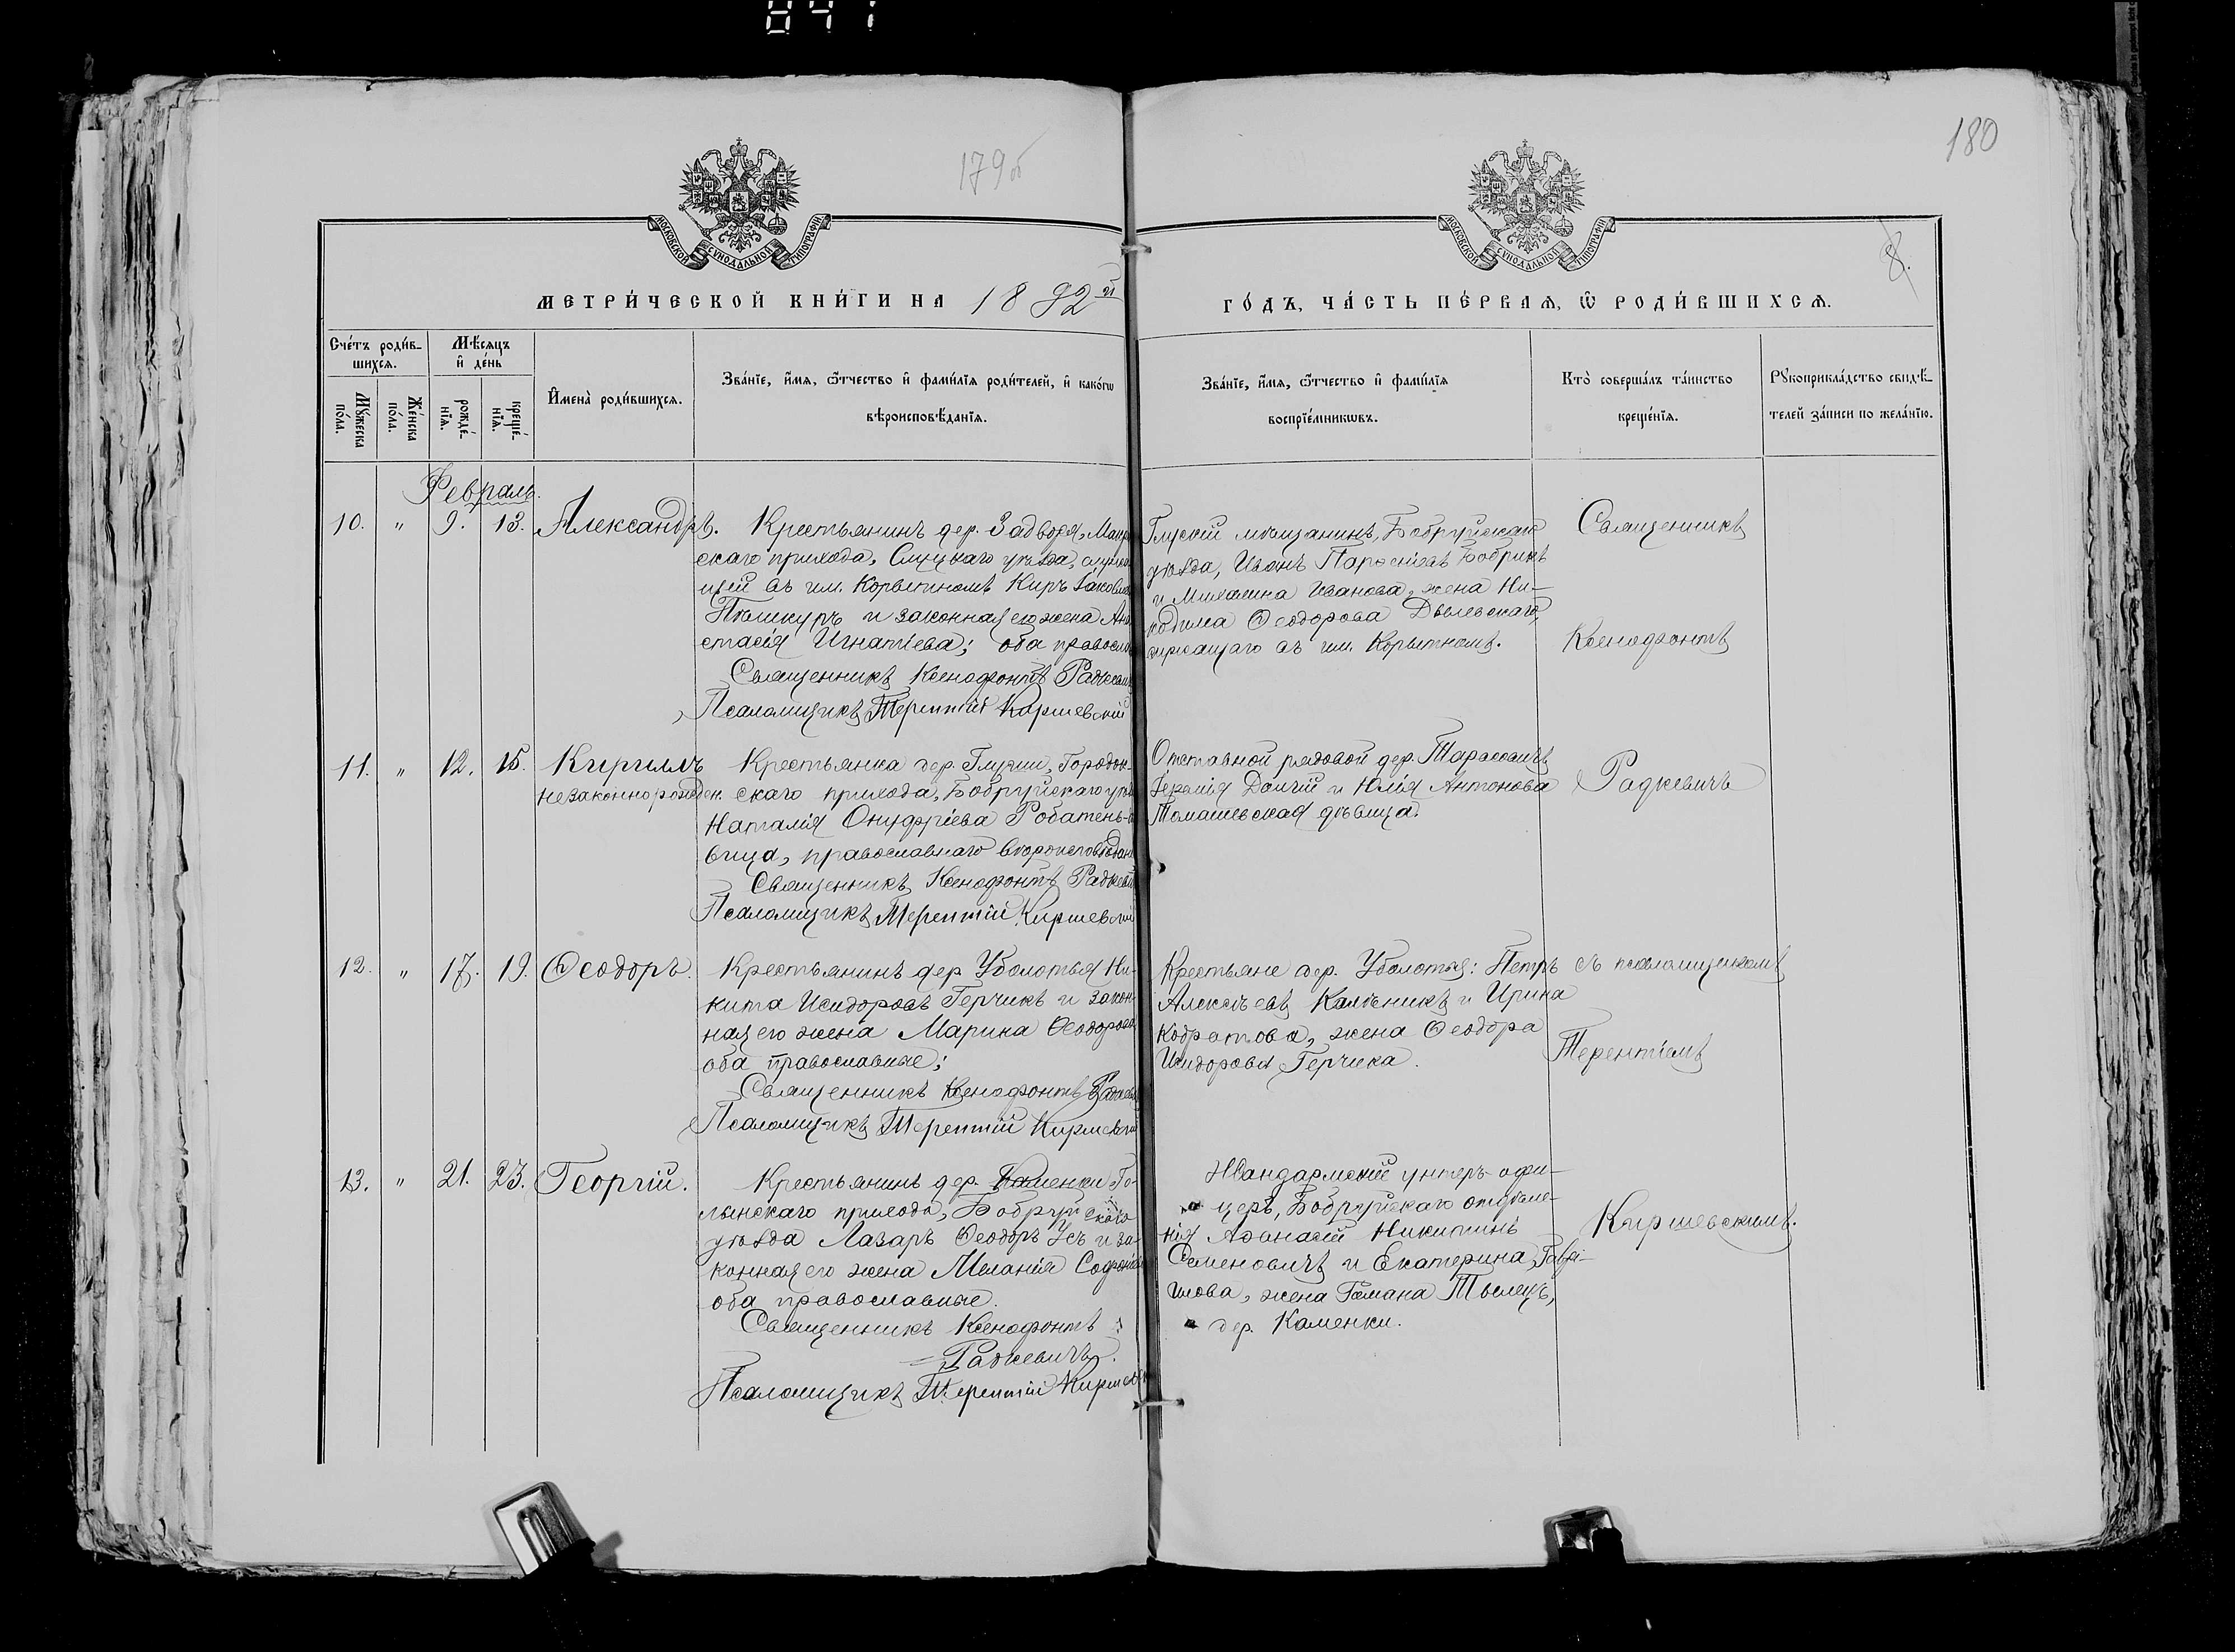 841
179об
180
8.
МОСКОВСКОЙ СѴНОДАЛЬНОЙ ТИПОГРАФІИ
МОСКОВСКОЙ СѴНОДАЛЬНОЙ ТИПОГРАФІИ
МЕТРИ́ЧЕСКОЙ КНИ́ГИ НА 1892й
ГО́ДЪ, ЧА́СТЬ ПЕ́РВАѦ, Ѿ РОДИ́ВШИХСѦ.
Сче́тъ роди́в-
шихсѧ.
Мѣ́сѧцъ
и҆ де́нь
Мꙋ́жеска
по́ла.
Же́нска
по́ла.
рожде́-
нїѧ.
креще́-
нїѧ.
И҆мена̀ роди́вшихсѧ.
Зва́нїе, и҆́мѧ, ѻ҆́тчество и҆ фами́лїѧ роди́телей, и҆ како́гѡ
вѣроисповѣ́данїѧ.
Зва́нїе, и҆́мѧ, ѻ҆́тчество и҆ фами́лїѧ
воспрїе́мникѡвъ.
Кто̀ соверша́лъ та́инство
креще́нїѧ.
Рꙋкоприкла́дство свидѣ́-
телей за́писи по жела́нїю.
Февраль.
10. " 9. 13. Александръ.
Крестьянинъ дер. Задворя,
скаго прихода, Слуцкаго уѣзда,
щій въ им. Корытномъ Киръ Іаковлев
Пѣшкуръ и законная его жена Ана
стасія Игнатіева; оба православ
Священникъ Ксенофонтъ Радкевич
Псаломщикъ Терентій Киршевскій
Глускій мѣщанинъ, Бобруйскаго
уѣзда, Иванъ Парѳеніевъ Бобрикъ
и Михалина Иванова, жена Ни-
кодима Ѳеодорова Дылевскаго,
служащаго въ им. Корытномъ.
Священникъ
Ксенофонтъ
11. " 12. 15. Кириллъ
незаконнорожден.
Крестьянка дер. Глуши, Городок-
скаго прихода, Бобруйскаго уѣз
Наталія Онуфріева Робатень-
вица, православнаго вѣроисповѣдан
Священникъ Ксенофонтъ Радкевич
Псаломщикъ Терентій Киршевскій
Отставной рядовой дер. Тарасовичъ
Іеремія Долгій и Юлія Антонова
Томашевская дѣвица.
Радкевичъ
12. " 17. 19. Ѳеодоръ.
Крестьянинъ дер Уболотья Ни-
кита Исидоровъ Герчикъ и закон-
ная его жена Марина Ѳеодорова
оба православные;
Священникъ Ксенофонтъ Радкев
Псаломщикъ Терентій Киршевскій
Крестьяне дер. Уболотья: Петръ
Алексѣевъ Калѣникъ и Ирина
Кодратова, жена Ѳеодора
Исидорова Герчика.
съ псаломщикомъ
Терентіемъ
13. " 21. 23. Георгій.
Крестьянинъ дер. Каменки Го-
лынскаго прихода, Бобруйскаго
уѣзда Лазарь Ѳеодоръ Усъ и за-
конная его жена Меланія Софроніе
оба православные.
Священникъ Ксенофонтъ
Радкевичъ.
Псаломщикъ Терентій Киршев
Жандармскій унтеръ-офи-
церъ, Бобруйскаго отдѣле-
нія Аѳанасій Никитинъ
Семеновичъ и Екатерина Гаврі-
илова, жена Романа
дер. Каменки.
Киршевскимъ.